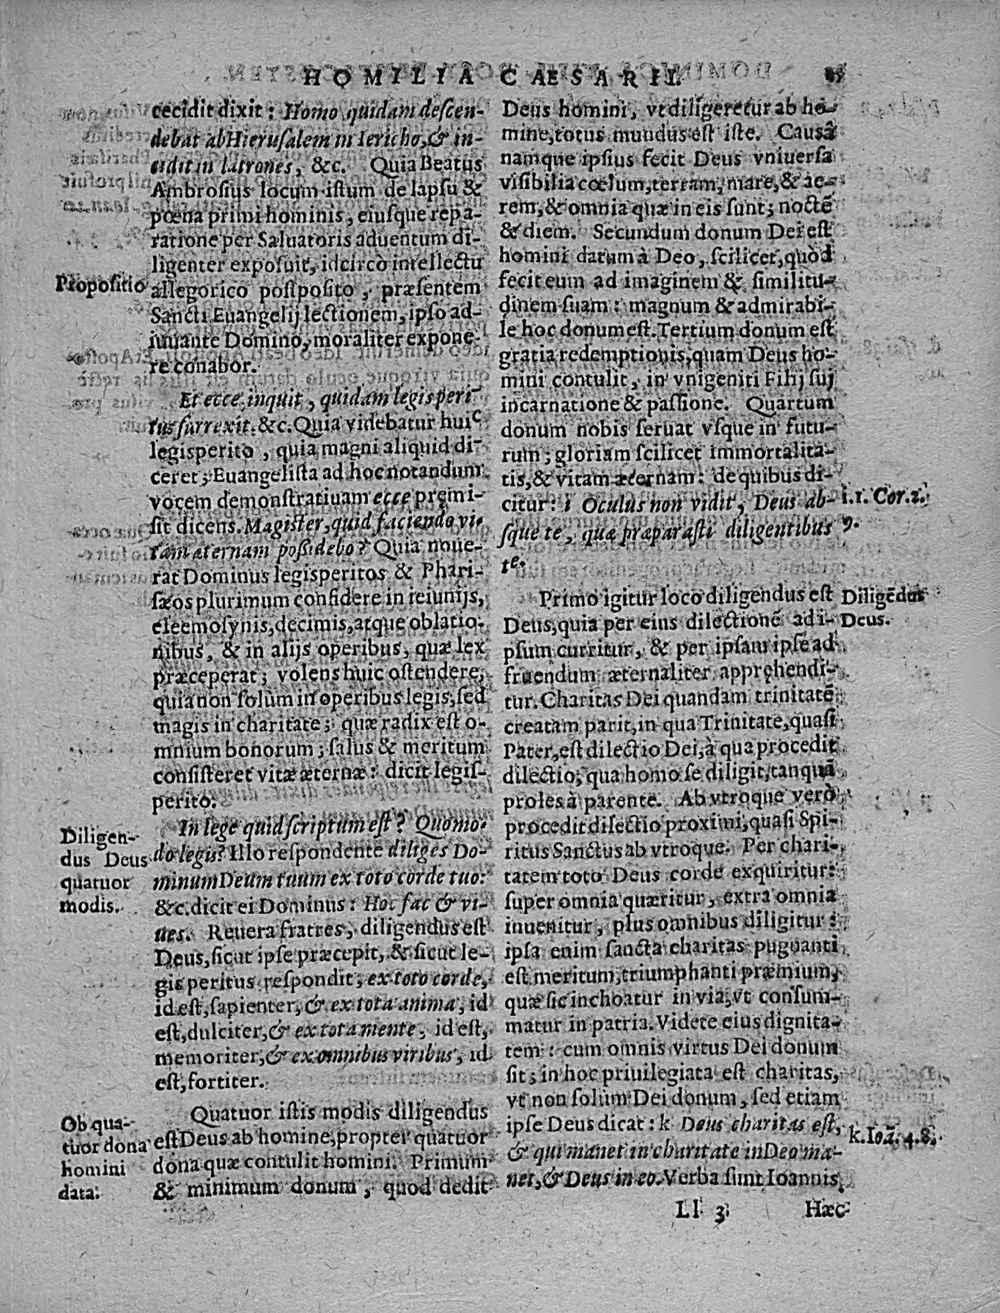 HOMILIA CAESARII.
cecidit dixit: Homo quidam descen-
debat ab Hierusalem in Iericho, & in-
cidit in latrones, &c. Quia Beatus
Ambrosius locum istum de lapsu &
pœna primi hominis, eiusque repa-
ratione per Saluatoris aduentum di-
ligenter exposuit, idcircò intellectu
Propositio
allegorico postposito, præsentem
Sancti Euangelij lectionem, ipso ad-
iuuante Domino, moraliter expone-
re conabor.
Et ecce, inquit, quidam legisperi-
tus surrexit. &c. Quia videbatur huic
legisperito, quia magni aliquid di-
ceret; Euangelista ad hoc notandum
vocem demonstratiuam ecce præmi-
sit dicens. Magister, quid faciendo vi-
tam æternam possidebo? Quia noue-
rat Dominus legisperitos & Phari-
sæos plurimum confidere in ieiunijs,
eleemosynis, decimis, atque oblatio-
nibus, & in alijs operibus, quæ lex
præceperat; volens huic ostendere,
quia non solùm in operibus legis, sed
magis in charitate; quæ radix est o-
mnium bonorum; salus & meritum
consisteret vitæ æternæ: dicit legis-
perito:
In lege quid scriptum est? Quomo-
do legis? Illo respondente diliges Do-
minum Deum tuum ex toto corde tuo:
&c. dicit ei Dominus: Hoc fac & vi-
ues. Reuera fratres, diligendus est
Deus, sicut ipse præcepit, & sicut le-
gis peritus respondit; ex toto corde,
id est, sapienter, & ex tota anima, id
est, dulciter, & ex tota mente, id est,
memoriter, & ex omnibus viribus, id
est, fortiter.
Diligen-
dus Deus
quatuor
modis.
Quatuor istis modis diligendus
est Deus ab homine, propter quatuor
dona quæ contulit homini. Primum
& minimum donum, quod dedit
Ob qua-
tuor dona
homini
data.
Deus homini, vt diligeretur ab ho-
mine, totus mundus est iste. Causa
namque ipsius fecit Deus vniuersa
visibilia cœlum, terram, mare, & ae-
rem, & omnia quæ in eis sunt; noctē
& diem. Secundum donum Dei est
homini datum à Deo, scilicet, quòd
fecit eum ad imaginem & similitu-
dinem suam: magnum & admirabi-
le hoc donum est. Tertium donum est
gratia redemptionis, quam Deus ho-
mini contulit, in vnigeniti Filij sui
incarnatione & passione. Quartum
donum nobis seruat vsque in futu-
rum; gloriam scilicet immortalita-
tis, & vitam æternam: de quibus di-
citur: i Oculus non vidit, Deus ab-
sque te, quæ præparasti diligentibus
te.
i. 1. Cor. 2.
9.
Primo igitur loco diligendus est
Deus, quia per eius dilectionē ad i-
psum curritur, & per ipsam ipse ad
fruendum æternaliter apprehendi-
tur. Charitas Dei quandam trinitatē
creatam parit, in qua Trinitate, quasi
Pater, est dilectio Dei, à qua procedit
dilectio, qua homo se diligit, tanquā
proles à parente. Ab vtroque verò
procedit dilectio proximi, quasi Spi-
ritus Sanctus ab vtroque. Per chari-
tatem toto Deus corde exquiritur:
super omnia quæritur, extra omnia
inuenitur, plus omnibus diligitur:
ipsa enim sancta charitas pugnanti
est meritum, triumphanti præmium,
quæ sic inchoatur in via, vt consum-
matur in patria. Videte eius dignita-
tem: cum omnis virtus Dei donum
sit; in hoc priuilegiata est charitas,
vt non solùm Dei donum, sed etiam
ipse Deus dicat: k Deus charitas est,
& qui manet in charitate in Deo ma-
net, & Deus in eo. Verba sunt Ioannis.
Diligēdus
Deus.
k. Ioā. 4. 8.
Ll 3
Hæc